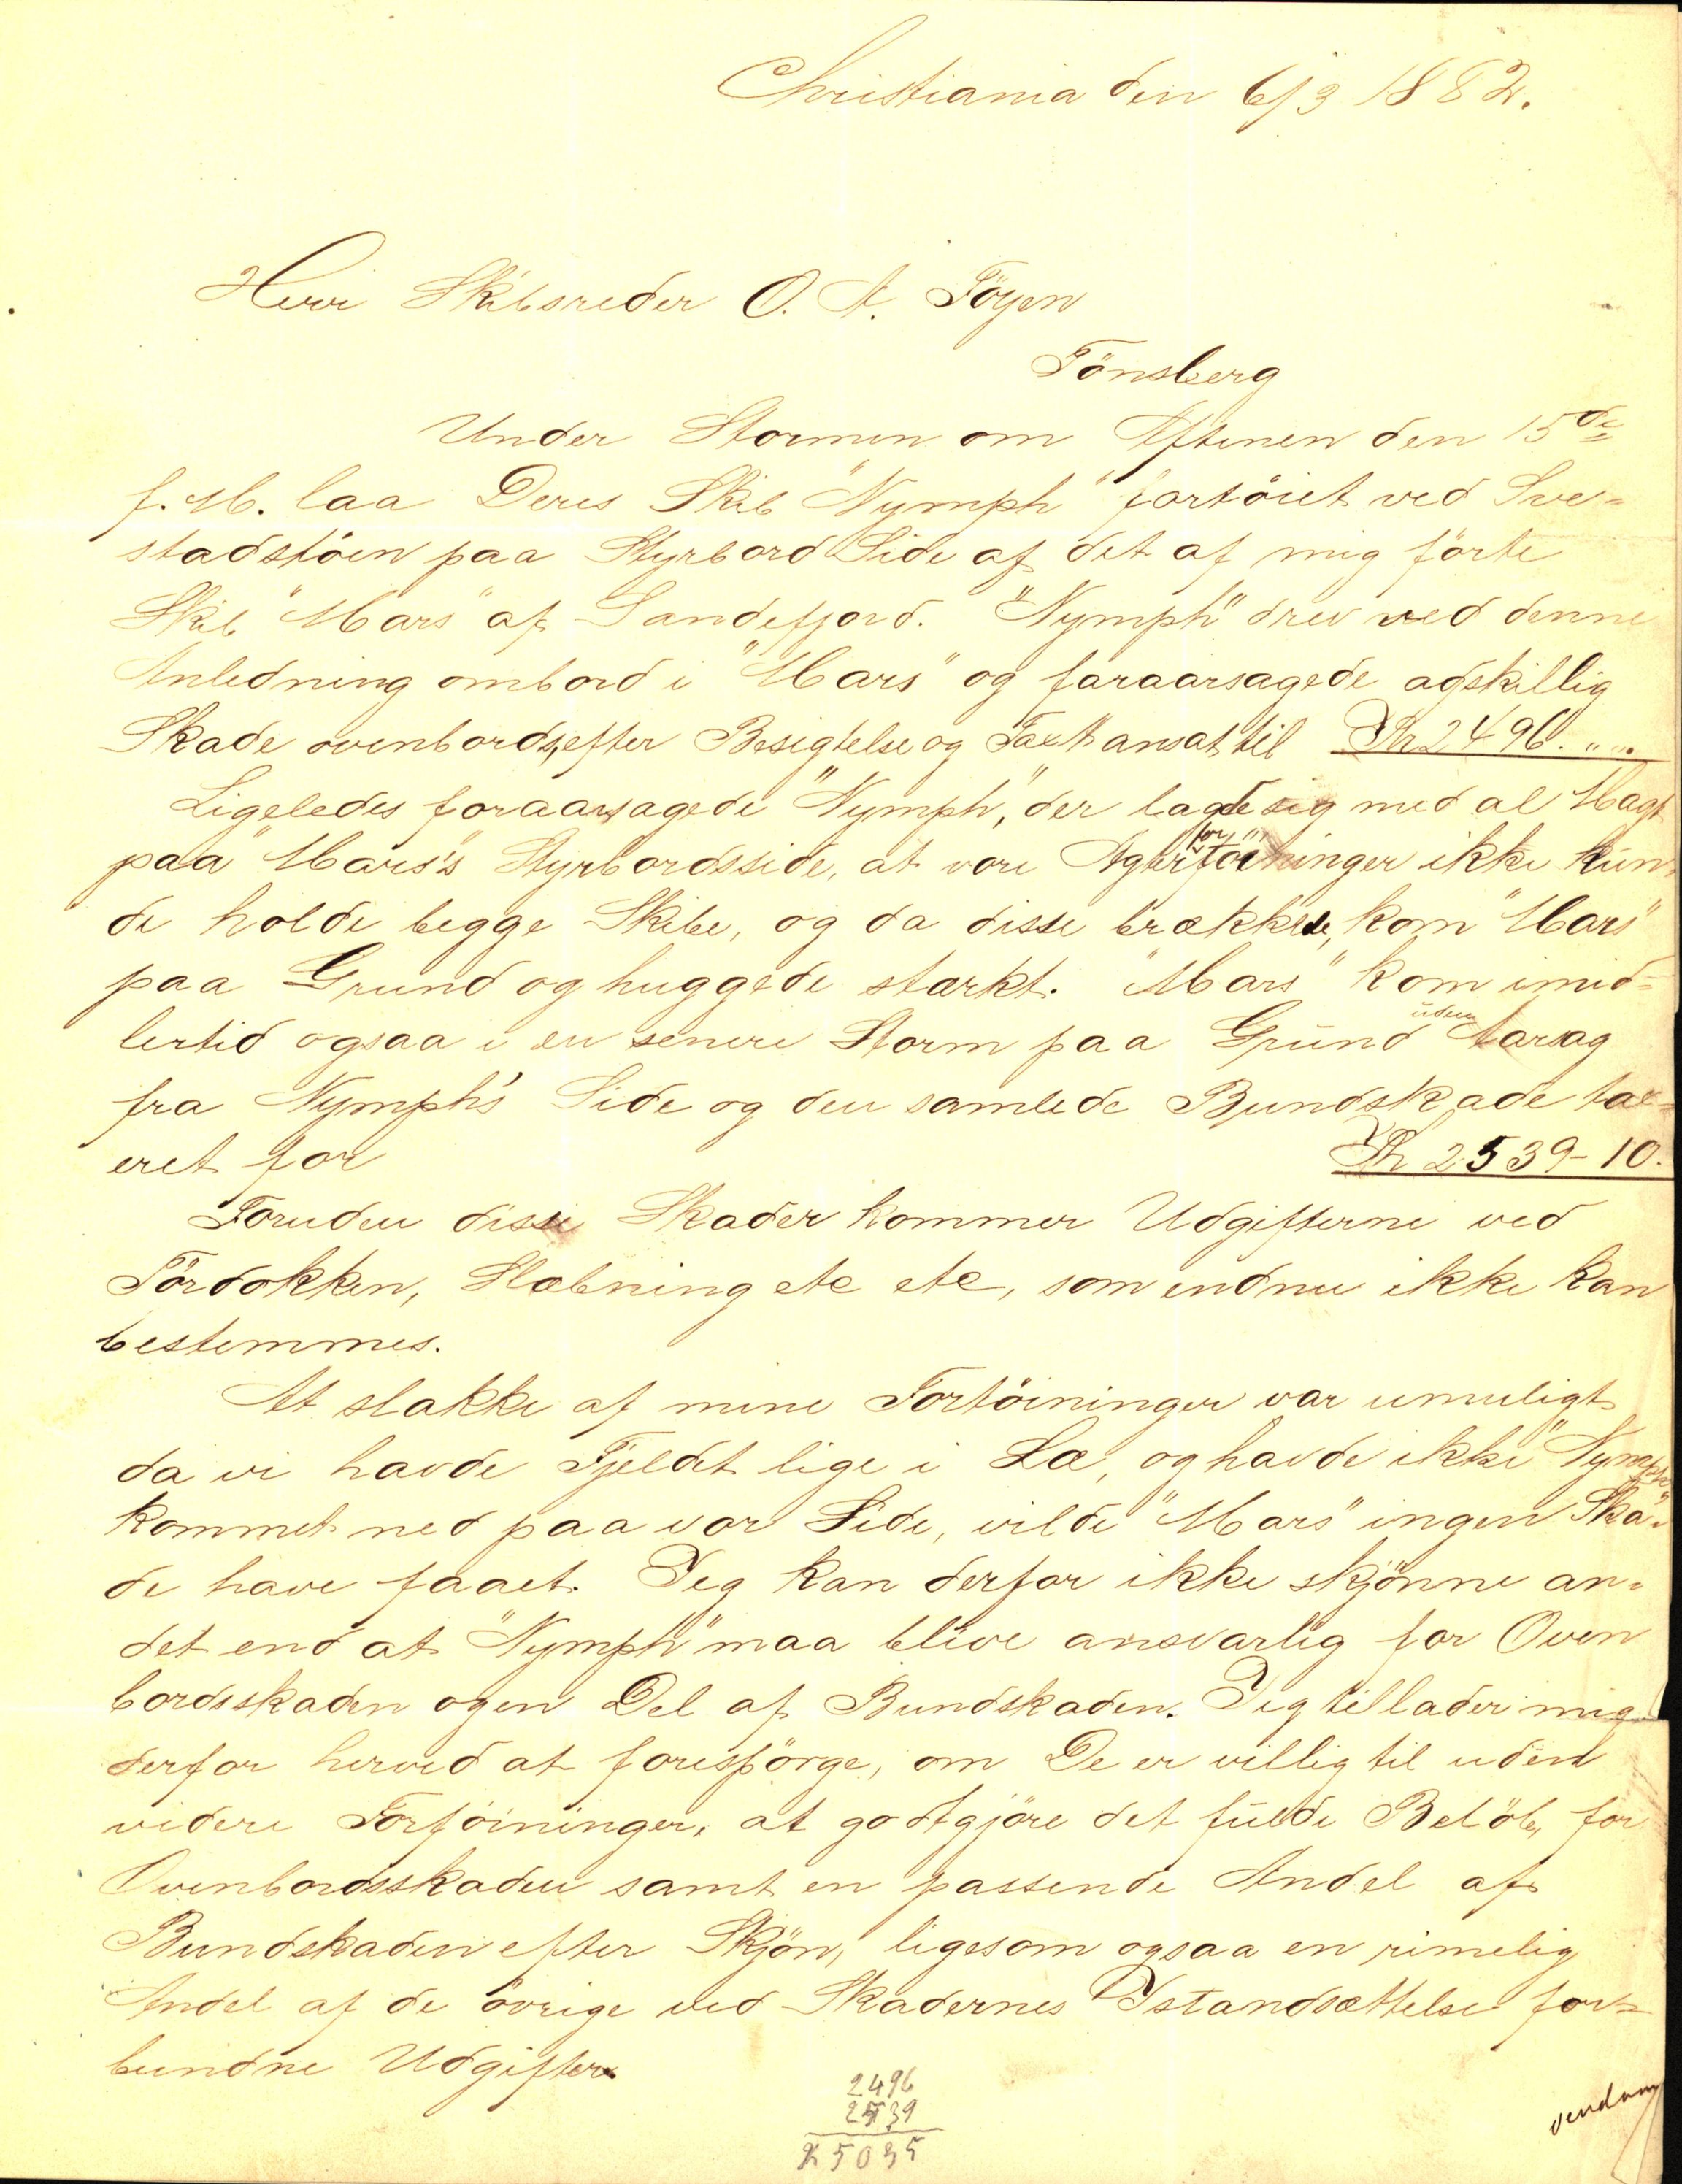 Christiania den 6/3 1882.
Herr Skibsreder O. A. Föyen
Tönsberg
Under Stormen om Aftenen den 15de
f. M. laa Deres Skib "Nymph" fortöiet ved Sve-
stadstöen paa Styrbord Side af det af mig förte
Skib "Mars" af Sandefjord. "Nymph" drev ved denne
Anledning ombord i "Mars" og foraarsagede adskillig
Skade ovenbords, efter Besigtelse og Taxt ansat til Kr 2496. " "
Ligeledes foraarsagede "Nymph", der lagde sig med al Magt
paa "Mars's Styrbordsside, at vore Agterfortöininger ikke kun-
de holde begge Skibe, og da disse brækkede, kom "Mars"
paa Grund og huggede stærkt. "Mars" kom imid-
lertid ogsaa i en senere Storm paa Grund uden Aarsag
fra Nymph's Side og den samlede Bundskade tax-
eret for Kr 2539-10.
Foruden disse Skader kommer Udgifterne ved
Tördokken, Slæbning etc etc, som endnu ikke kan
bestemmes.
At slakke af mine Fortöininger var umuligt
da vi havde Fjeldet lige i Læ, og havde ikke "Nymph"
kommet ned paa vor Side, vilde "Mars" ingen Ska-
de have faaet. Jeg kan derfor ikke skjönne an-
det end at "Nymph" maa blive ansvarlig for Oven
bordsskaden og en Del af Bundskaden. Jeg tillader mig
derfor herved at forespörge, om De er villig til uden
videre Forföininger, at godtgjöre det fulde Belöb, for
Ovenbordsskaden samt en passende Andel af
Bundskaden efter Skjön, ligesom ogsaa en rimelig
Andel af de övrige ved Skadernes Istandsættelse for-
bundne Udgifter.
2496
2539
Kr 5035
vend om